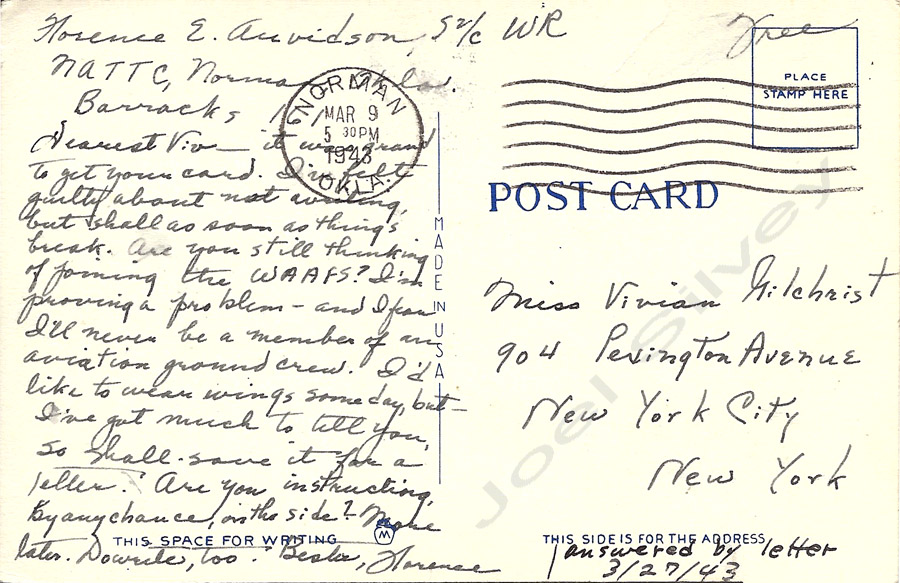 Florence E. Arvidson, S2/c WR
NATTC, Norman, Okla.
Barracks
Dearest Viv — it was grand
to get your card. I've felt
guilty about not writing,
but shall as soon as things
break. Are you still thinking
of joining the WAAFS? I'm
proving a problem — and I fear
I'll never be a member of an
aviation ground crew. I'd
like to wear wings someday, but —
I've got much to tell you,
so shall save it for a
letter. Are you instructing,
By any chance, on the side? More
later. Do write, too. Best, Florence
NORMAN
MAR 9
5 30 PM
1943
OKLA.
Free
PLACE
STAMP HERE
POST CARD
MADE IN USA
Miss Vivian Gilchrist
904 Lexington Avenue
New York City
New York
THIS SPACE FOR WRITING
M
THIS SIDE IS FOR THE ADDRESS
answered by letter
3/27/43
Joel Silvey